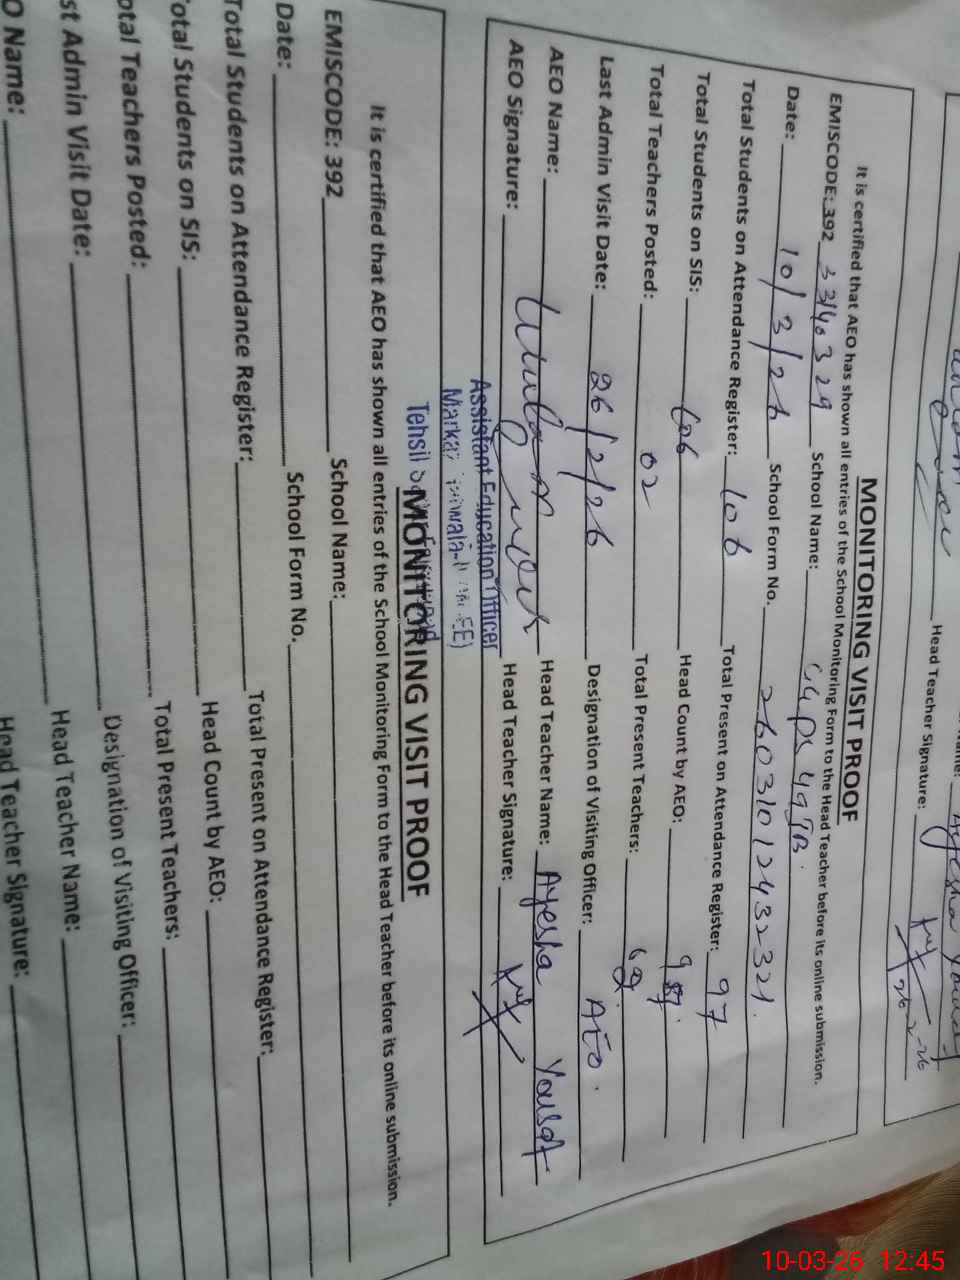 Name: Ayesha Yousaf
Head Teacher Signature:
26-2-26
MONITORING VISIT PROOF
It is certified that AEO has shown all entries of the School Monitoring Form to the Head Teacher before its online submission.
EMISCODE: 392 33140329 School Name: GGPS 49JB.
Date: 10/3/26 School Form No. 26031012432321.
Total Students on Attendance Register: 106 Total Present on Attendance Register: 97
Total Students on SIS: 106 Head Count by AEO: 97.
Total Teachers Posted: 02 Total Present Teachers: 02.
Last Admin Visit Date: 26/2/26 Designation of Visiting Officer: AEO.
AEO Name: Head Teacher Name: Ayesha Yousaf
AEO Signature: Head Teacher Signature:
Assistant Education Officer
Markaz
Tehsil
MONITORING VISIT PROOF
It is certified that AEO has shown all entries of the School Monitoring Form to the Head Teacher before its online submission.
EMISCODE: 392 School Name:
Date: School Form No.
Total Students on Attendance Register: Total Present on Attendance Register:
Total Students on SIS: Head Count by AEO:
otal Teachers Posted: Total Present Teachers:
st Admin Visit Date: Designation of Visiting Officer:
O Name: Head Teacher Name:
Head Teacher Signature:
10-03-26 12:45